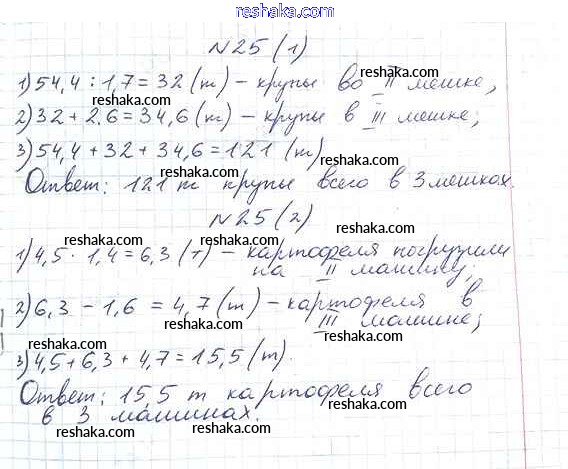 reshaka.com
N25 (1)
reshaka.com
1) 54,4 : 1,7 = 32 (т) – крупы во II мешке,
reshaka.com reshaka.com
2) 32 + 2,6 = 34,6 (т) – крупы в III мешке;
reshaka.com
3) 54,4 + 32 + 34,6 = 121 (т)
reshaka.com reshaka.com
Ответ: 121 т крупы всего в 3 мешках.
reshaka.com
N25 (2)
reshaka.com reshaka.com
1) 4,5 · 1,4 = 6,3 (т) – картофеля погрузили
на II машину;
reshaka.com
2) 6,3 – 1,6 = 4,7 (т) – картофеля в
III машине;
reshaka.com reshaka.com
3) 4,5 + 6,3 + 4,7 = 15,5 (т).
reshaka.com
Ответ: 15,5 т картофеля всего
reshaka.com
в 3 машинах.
reshaka.com reshaka.com